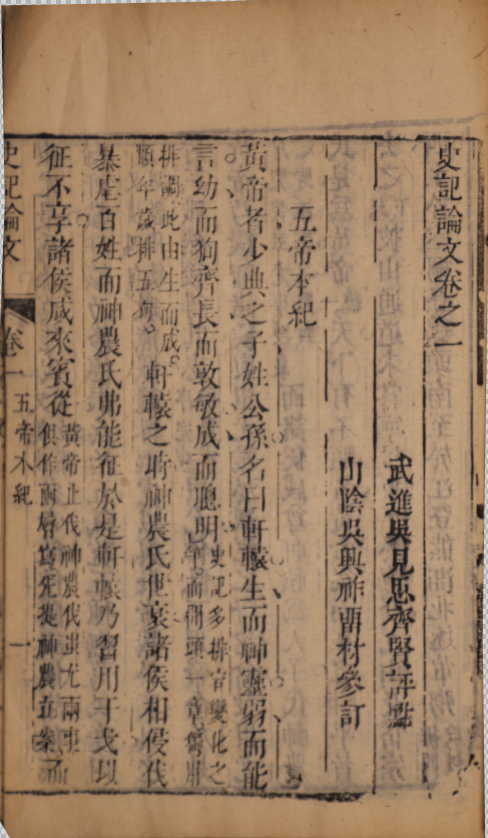 史記論文卷之一
武進吳見思齊賢評點
山陰吳興祚留村參訂
五帝本紀
黃帝者少典之子姓公孫名曰軒轅生而神靈弱而能
言幼而狥齊長而敦敏成而聰明史記多排宕變化之
而開頭一章
排調此由生而成
順年歲排五句軒轅之時神農氏世衰諸侯相侵伐
暴虐百姓而神農氏弗能征於是軒轅乃習用干戈以
征不享諸侯咸來賓從黃帝止伐神農伐蚩尤兩事
俱作兩層寫先提神農在案
史記論文
卷一
五帝本紀
一